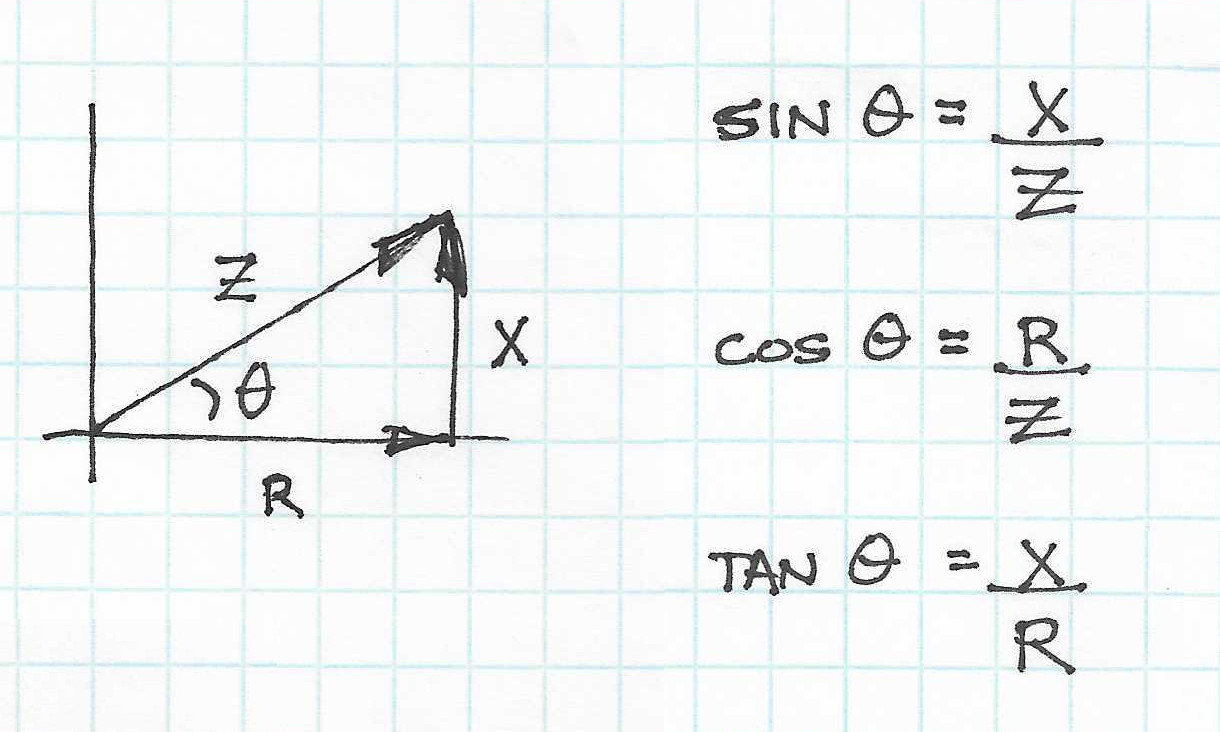 Z
θ
X
R
SIN θ = X
Z
COS θ = R
Z
TAN θ = X
R